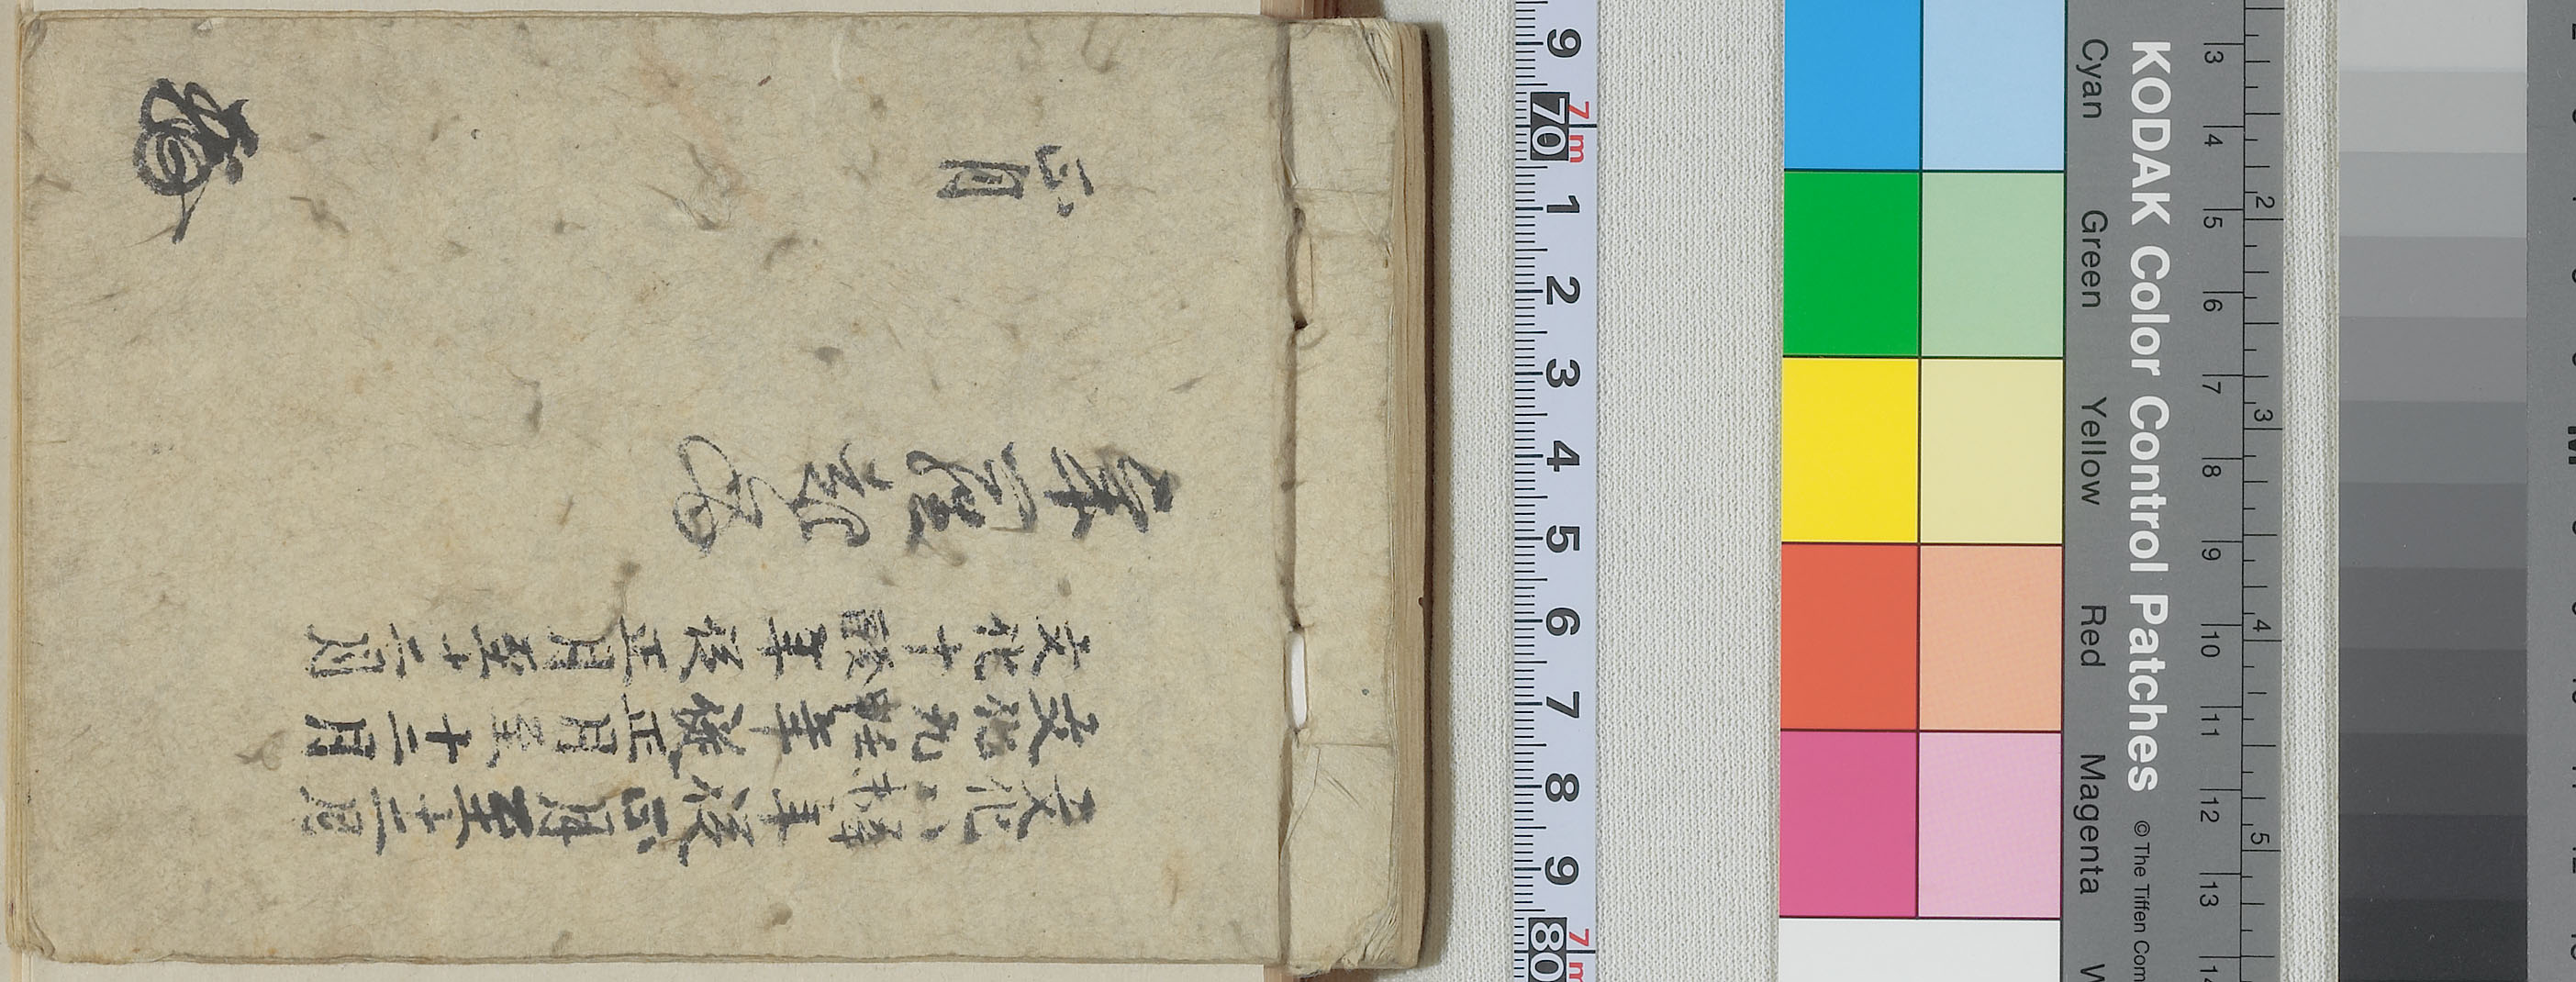 文化八辛未年従正月至十二月
文化九壬申年従正月至十二月
文化十癸酉年従正月至十二月
KODAK Color Control Patches © The Tiffen Com
Cyan Green Yellow Red Magenta W
3 4 5 6 7 8 9 10 11 12 13 14
2 3 4 5
9 70 1 2 3 4 5 6 7 8 9 80
7m 7m